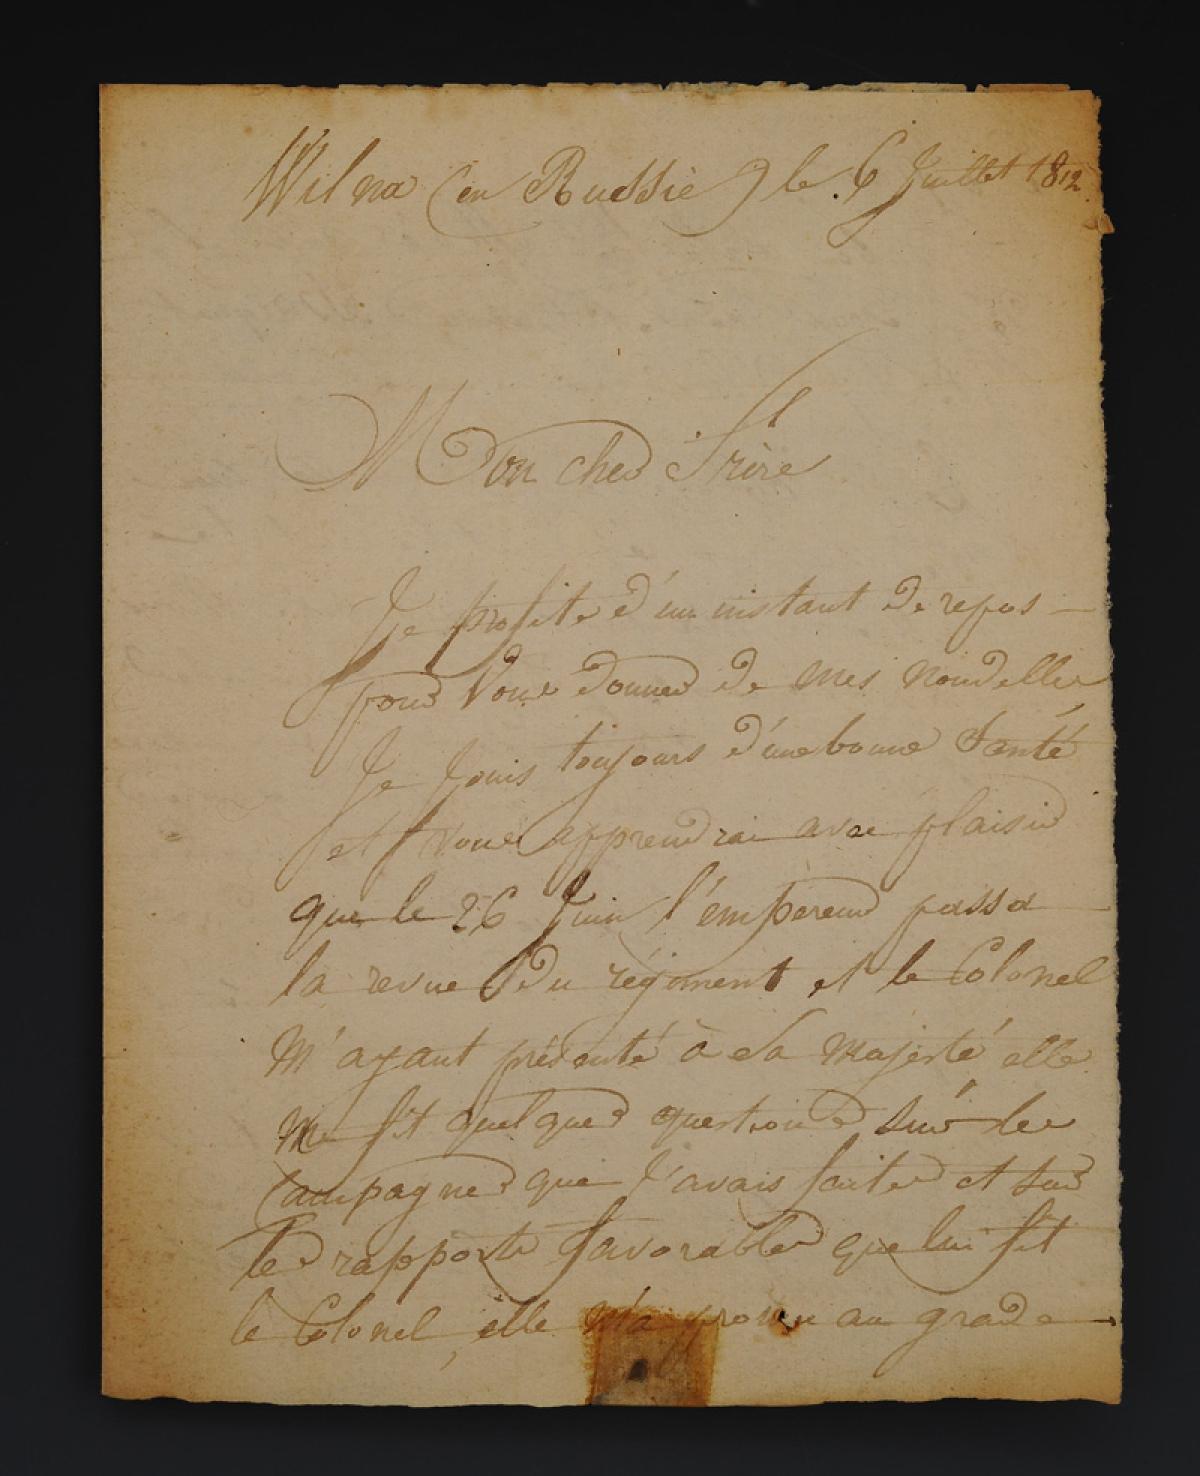 Wilna (en Russie) le 6 Juillet 1812
Mon cher Frère
Je profite d'un instant de repos —
pour vous donner de mes nouvelles
Je jouis toujours d'une bonne santé
et vous apprendrai avec plaisir
que le 26 Juin l'empereur passa
la revue du régiment et le Colonel
M'ayant présenté à sa Majesté elle
me fit quelques questions sur les
Campagnes que j'avais faites et sur
les rapports favorables que lui fit
le Colonel, elle m'a promu au grade —